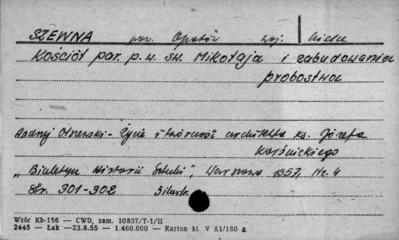 SZEWNA pow. Opatów woj. Kielce
Kościół par. p. w. św. Mikołaja i zabudowania
probostwa
Andrzej Olszewski - Życie i twórczość architekta ks. Józefa
Karśnickiego
"Biuletyn Historii Sztuki", Warszawa 1957, Nr. 4
Str. 301-302 3 ilustr.
Wzór Kb-156 — CWD, zam. 10837/T-1/II
2445 — Łak — 23.8.55 — 1.460.000 — Karton kl. V A1/180 g